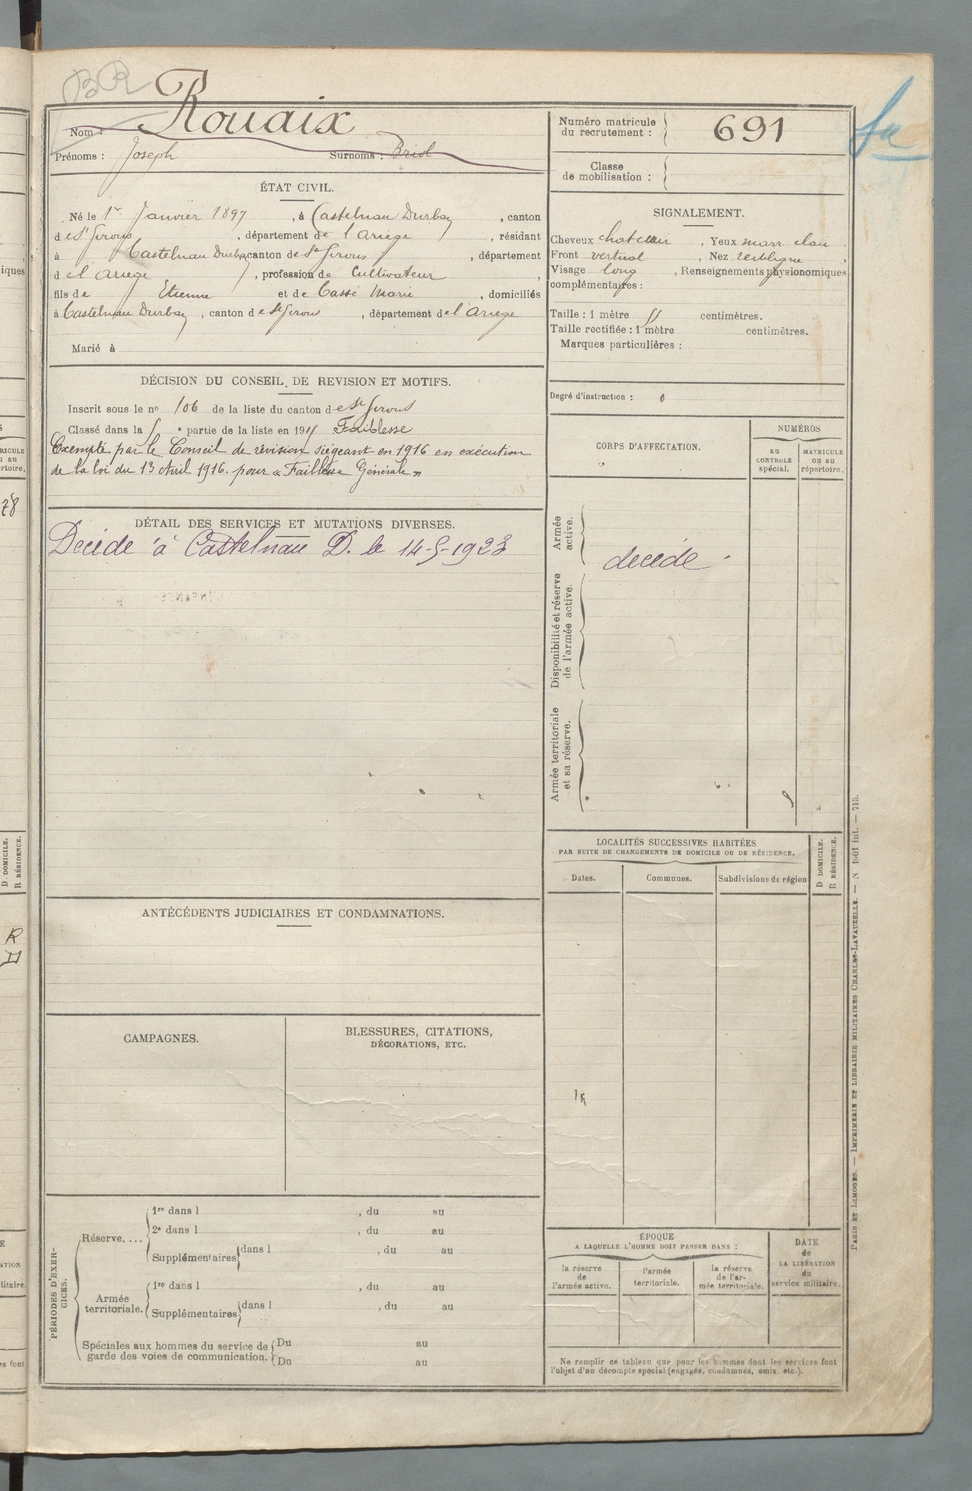 BR
Nom : Rouaix
Prénoms : Joseph Surnoms : Briol
Numéro matricule du recrutement : 691
Classe de mobilisation :
ÉTAT CIVIL.
Né le 1er Janvier 1897, à Castelnau Durban, canton
de St Girons, département de l'Ariège, résidant
à Castelnau Durban canton de St Girons, département
d el Ariège, profession de Cultivateur
fils de Etienne et de Cassé Marie, domiciliés
à Castelnau Durban, canton de St Girons, département de l'Ariège
Marié à
SIGNALEMENT.
Cheveux chatain, Yeux marr clair,
Front vertical, Nez rectiligne,
Visage long, Renseignements physionomiques
complémentaires :
Taille : 1 mètre centimètres.
Taille rectifiée : 1 mètre centimètres.
Marques particulières :
Degré d'instruction :
DÉCISION DU CONSEIL DE REVISION ET MOTIFS.
Inscrit sous le no 106 de la liste du canton de St Girons
Classé dans la 5e partie de la liste en 191 Faiblesse
Exempté par le Conseil de révision siégeant en 1916 en exécution
de la loi du 13 Avril 1916. pour « Faiblesse Générale »
DÉTAIL DES SERVICES ET MUTATIONS DIVERSES.
Décédé à Castelnau D. le 14-5-1923
CORPS D'AFFECTATION.
NUMÉROS
AU CONTROLE spécial.
MATRICULE OU AU répertoire.
Armée active.
décédé
Disponibilité et réserve de l'armée active.
Armée territoriale et sa réserve.
LOCALITÉS SUCCESSIVES HABITÉES
PAR SUITE DE CHANGEMENTS DE DOMICILE OU DE RÉSIDENCE.
Dates. Communes. Subdivisions de région
D DOMICILE.
R RÉSIDENCE.
ANTÉCÉDENTS JUDICIAIRES ET CONDAMNATIONS.
CAMPAGNES.
BLESSURES, CITATIONS,
DÉCORATIONS, ETC.
PÉRIODES D'EXERCICES.
Réserve....
1re dans l , du au
2e dans l , du au
Supplémentaires dans l , du au
Armée territoriale.
1re dans l , du au
Supplémentaires dans l , du au
Spéciales aux hommes du service de garde des voies de communication.
Du au
Du au
ÉPOQUE
A LAQUELLE L'HOMME DOIT PASSER DANS :
la réserve de l'armée active.
l'armée territoriale.
la réserve de l'armée territoriale.
DATE de LA LIBÉRATION du service militaire.
Ne remplir ce tableau que pour les hommes dont les services font
l'objet d'un décompte spécial (engagés, condamnés, omis, etc.).
PARIS ET LIMOGES. — IMPRIMERIE ET LIBRAIRIE MILITAIRES CHARLES-LAVAUZELLE. — N 1601 int. — 715.